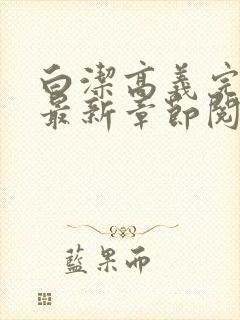 白潔高義完
最新章節閱
藍果而